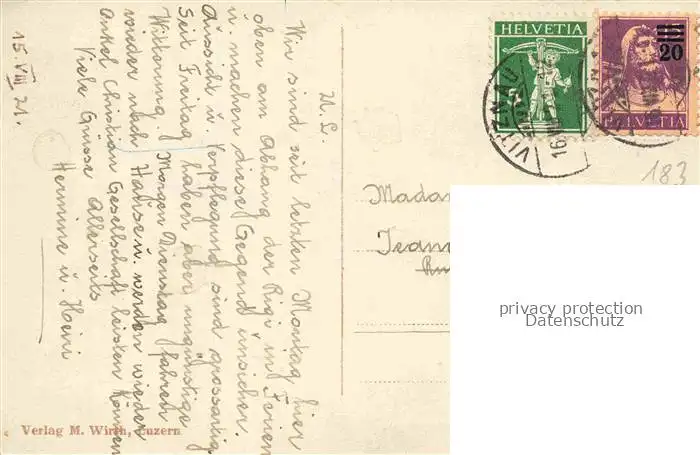 15. VIII 21.
M. L.
Wir sind seit letzten Montag hier
oben am Abhang der Rigi in Ferien
u. machen diese Gegend unsicher.
Aussicht u. Verpflegung sind grossartig
Seit Freitag haben aber ungünstige
Witterung. Morgen Dienstag fahren
wieder nach Hause u. werden wieder
Onkel Christian Gesellschaft leisten können
Viele Grüsse Allerseits
Hermine u. Heini
Verlag M. Wirth, Luzern
HELVETIA
5
HELVETIA
20
VITZNAU
16. VIII
183
Madam
Jean
privacy protection
Datenschutz